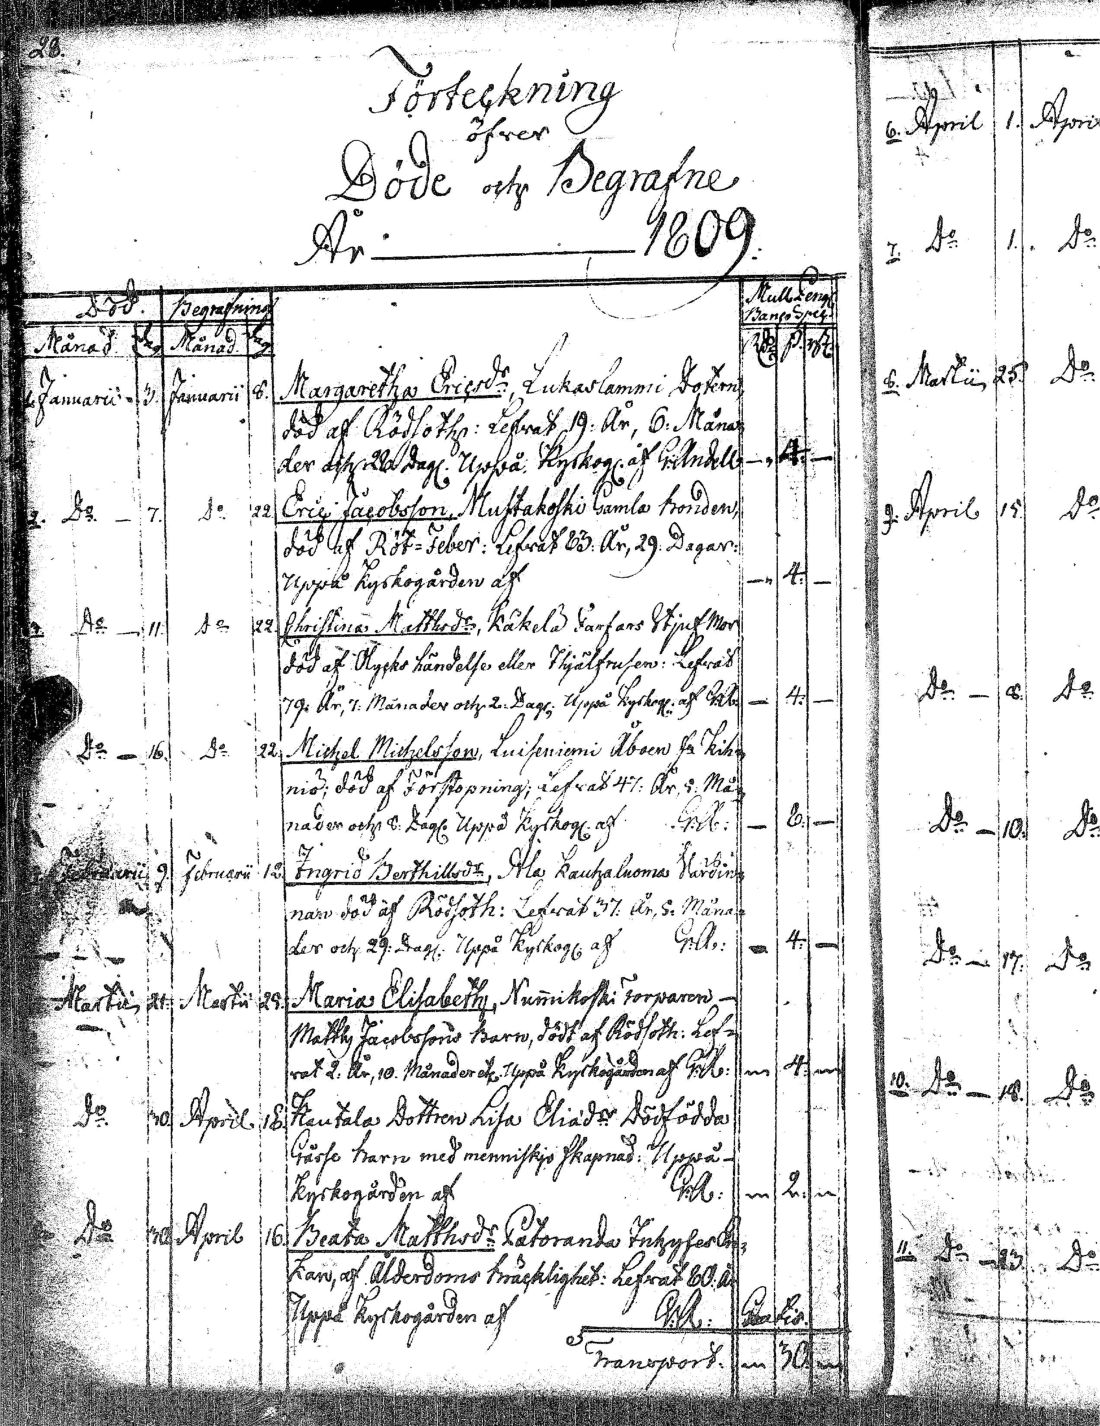 28.
Förteckning
öfver
Döde och Begrafne
År 1809.
Död. Begrafning Mull Peng.
Månad Dag Månad Dag
Januarii 3. Januarii 8. Margaretha Ericsdr, Lukaslammi Dotern,
död af Rödsoth: Lefvat 19: År, 6: Måna=
der och 22 Dag. Uppå Kyrkog. af G: Andell — 4. —
2. Do — 7. Do 22 Eric Jacobsson, Mustakoski Gamla bonden,
död af Röt=Feber: Lefvat 83: År, 29: Dagar:
Uppå Kyrkogården af — 4. —
Do — 11. Do 22 Christina Matthsdr, Käkelä Farfars Stjuf Mor
död af Olycks händelse eller Ihjälfrusen: Lefvat
79: År, 7: Månader och 2: Dag. Uppå Kyrkog. af G:A: — 4. —
Do — 16. Do 22. Michel Michelsson, Luiseniemi Åboen fr Kih=
niö; död af Förstopning; Lefvat 47: År, 5: Må=
nader och 8: Dag. Uppå Kyrkog. af G:A: — 8. —
Februarii 9. Februarii 12. Ingrid Berthillsdr, Ala Kautzaluoma Värdin=
nan död af Rödsoth: Lefvat 37: År, 5: Måna=
der och 29: Dag. Uppå Kyrkog. af G:A: — 4. —
Martii 21. Martii 25. Maria Elisabeth, Nummikoski Torparen —
Matths Jacobssons barn, dödt af Rödsoth: Lef=
vat 2: År, 10. Månader etc. Uppå Kyrkogården af G:A: — 4. —
Do 30. April. 18. Hautala Dottren Lisa Eliædr Dödfödda
Gåsse barn med menniskjo skapnad: Uppå —
Kyrkogården af G:A: — 2. —
Do 30. April 16. Beata Matthsdr Patoranda Inhyses En=
kan, af Ålderdoms bräcklighet: Lefvat 80. År
Uppå Kyrkogården af G:A: Gratis.
Transport. — 30. —
6. April 1. April
7. Do 1. Do
8. Martii 25. Do
9. April 15. Do
Do — 8. Do
Do — 10. Do
Do — 17. Do
10. Do — 18. Do
11. Do — 23. Do